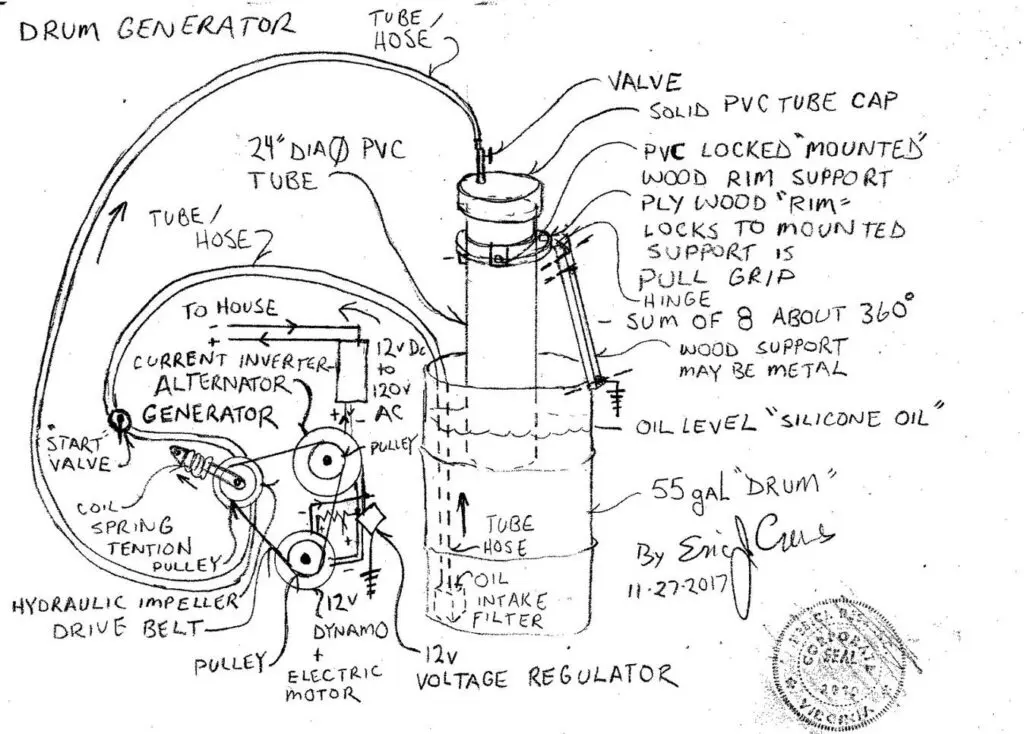 DRUM GENERATOR
TUBE/
HOSE
VALVE
SOLID PVC TUBE CAP
24" DIA Ø PVC
TUBE
PVC LOCKED "MOUNTED"
WOOD RIM SUPPORT
PLY WOOD "RIM"
LOCKS TO MOUNTED
SUPPORT IS
PULL GRIP
HINGE
- SUM OF 8 ABOUT 360°
WOOD SUPPORT
MAY BE METAL
TUBE/
HOSE
TO HOUSE
- +
CURRENT INVERTER
12V DC
TO
120V
AC
ALTERNATOR
GENERATOR
PULLEY
OIL LEVEL "SILICONE OIL"
"START"
VALVE
COIL
SPRING
TENTION
PULLEY
55 gal "DRUM"
TUBE
HOSE
OIL
INTAKE
FILTER
By Eric
11-27-2017
HYDRAULIC IMPELLER
DRIVE BELT
PULLEY
12V
DYNAMO
+
ELECTRIC
MOTOR
12V
VOLTAGE REGULATOR
CORPORATE
SEAL
VIRGINIA